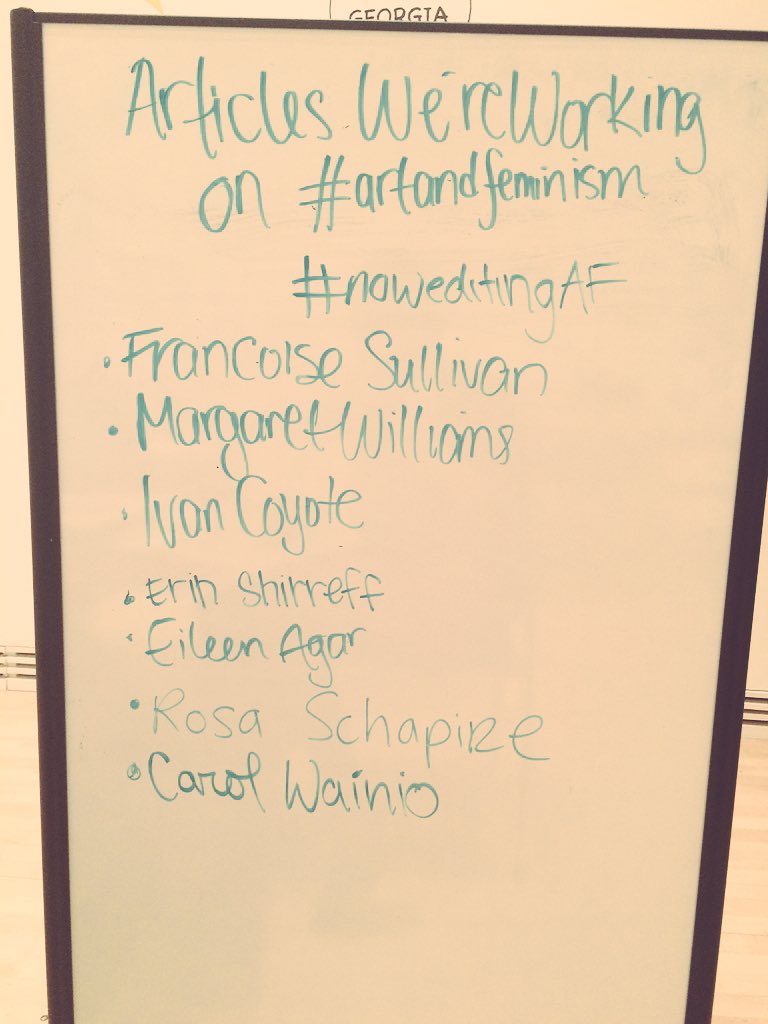 GEORGIA
Articles We're Working
on #artandfeminism
#noweditingAF
• Francoise Sullivan
• Margaret Williams
• Ivan Coyote
• Erin Shirreff
• Eileen Agar
• Rosa Schapire
• Carol Wainio